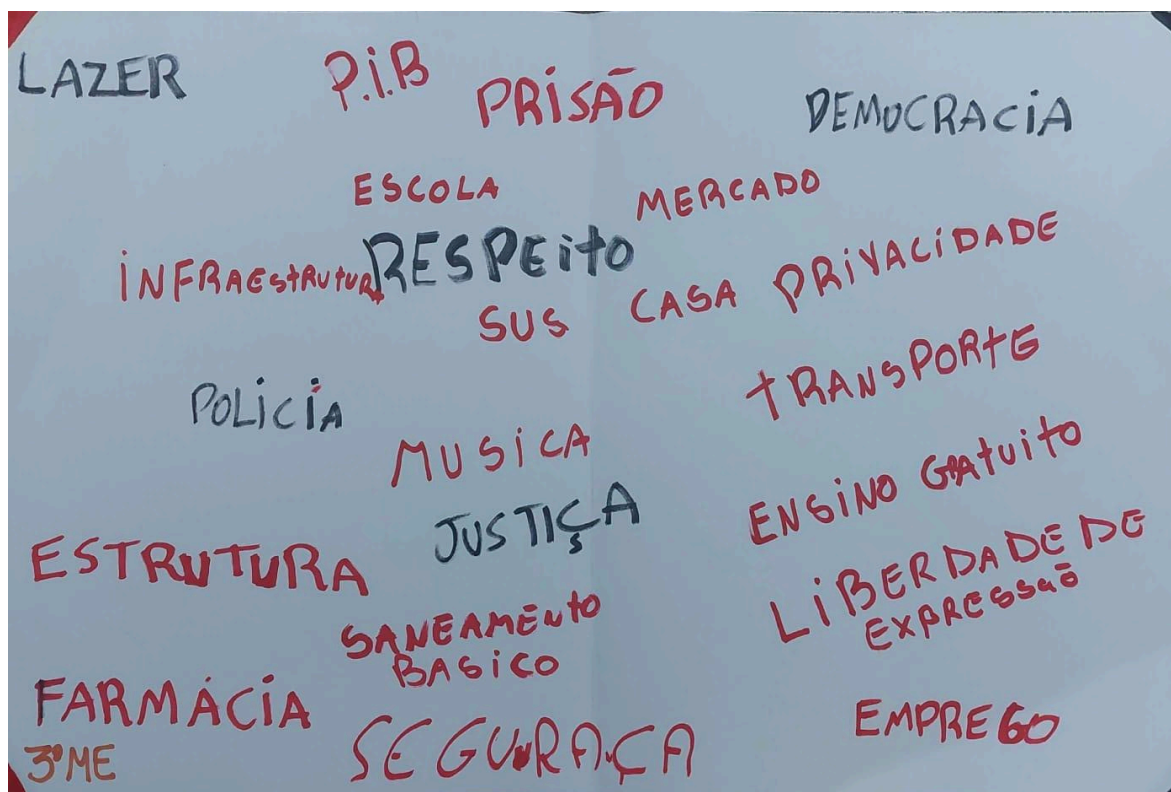 LAZER
P.i.B
PRiSÃO
DEMOCRACiA
ESCOLA
MERCADO
iNFRAEStRUtURA
RESPEito
SUS
CASA PRiVACiDADE
POLiCiA
tRANSPORtE
MUSiCA
ENSiNO GRAtuito
JUSTIÇA
ESTRUTURA
LiBERDADE DE
EXPRESSãO
SANEAMENto
BASiCO
FARMÁCiA
EMPREGO
SEGURAÇA
3º ME